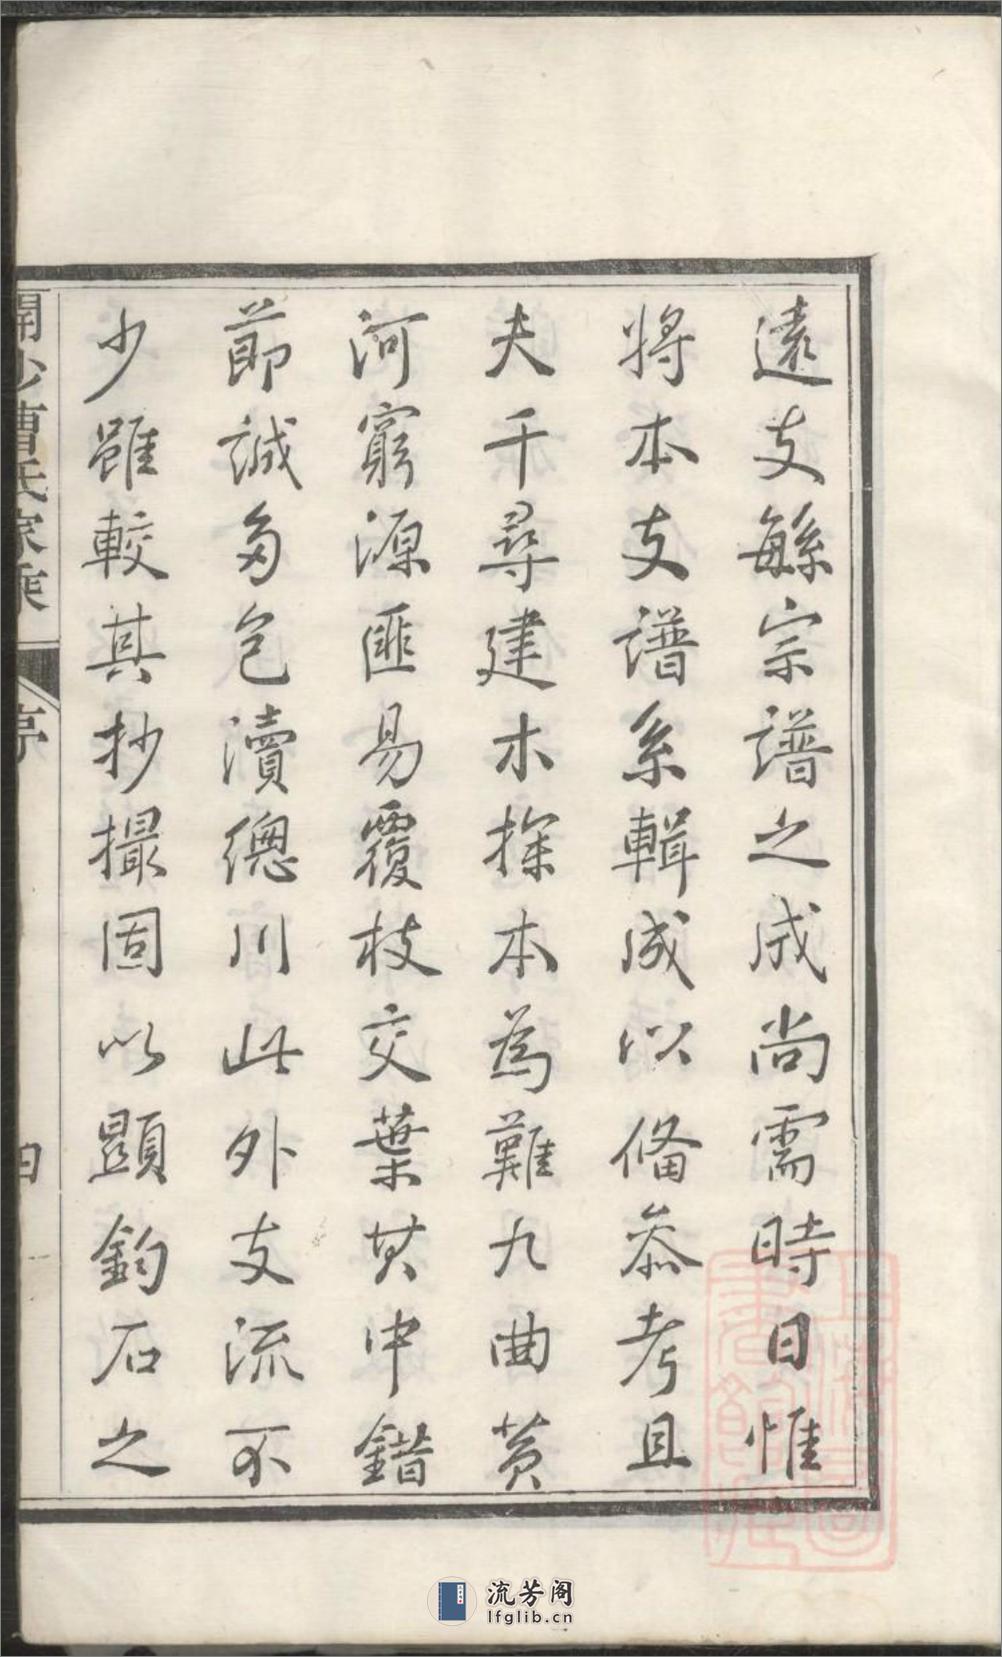 遠支繇宗譜之成尚需時日惟
將本支譜系輯成以備叅考且
夫千尋建木探本為難九曲黃
河窮源匪易覆枝交葉其中錯
節誠多包瀆總川此外支流不
少雖較其抄撮固以顯鈞石之
開沙曹氏家乘
序
四
流芳阁
lfglib.cn